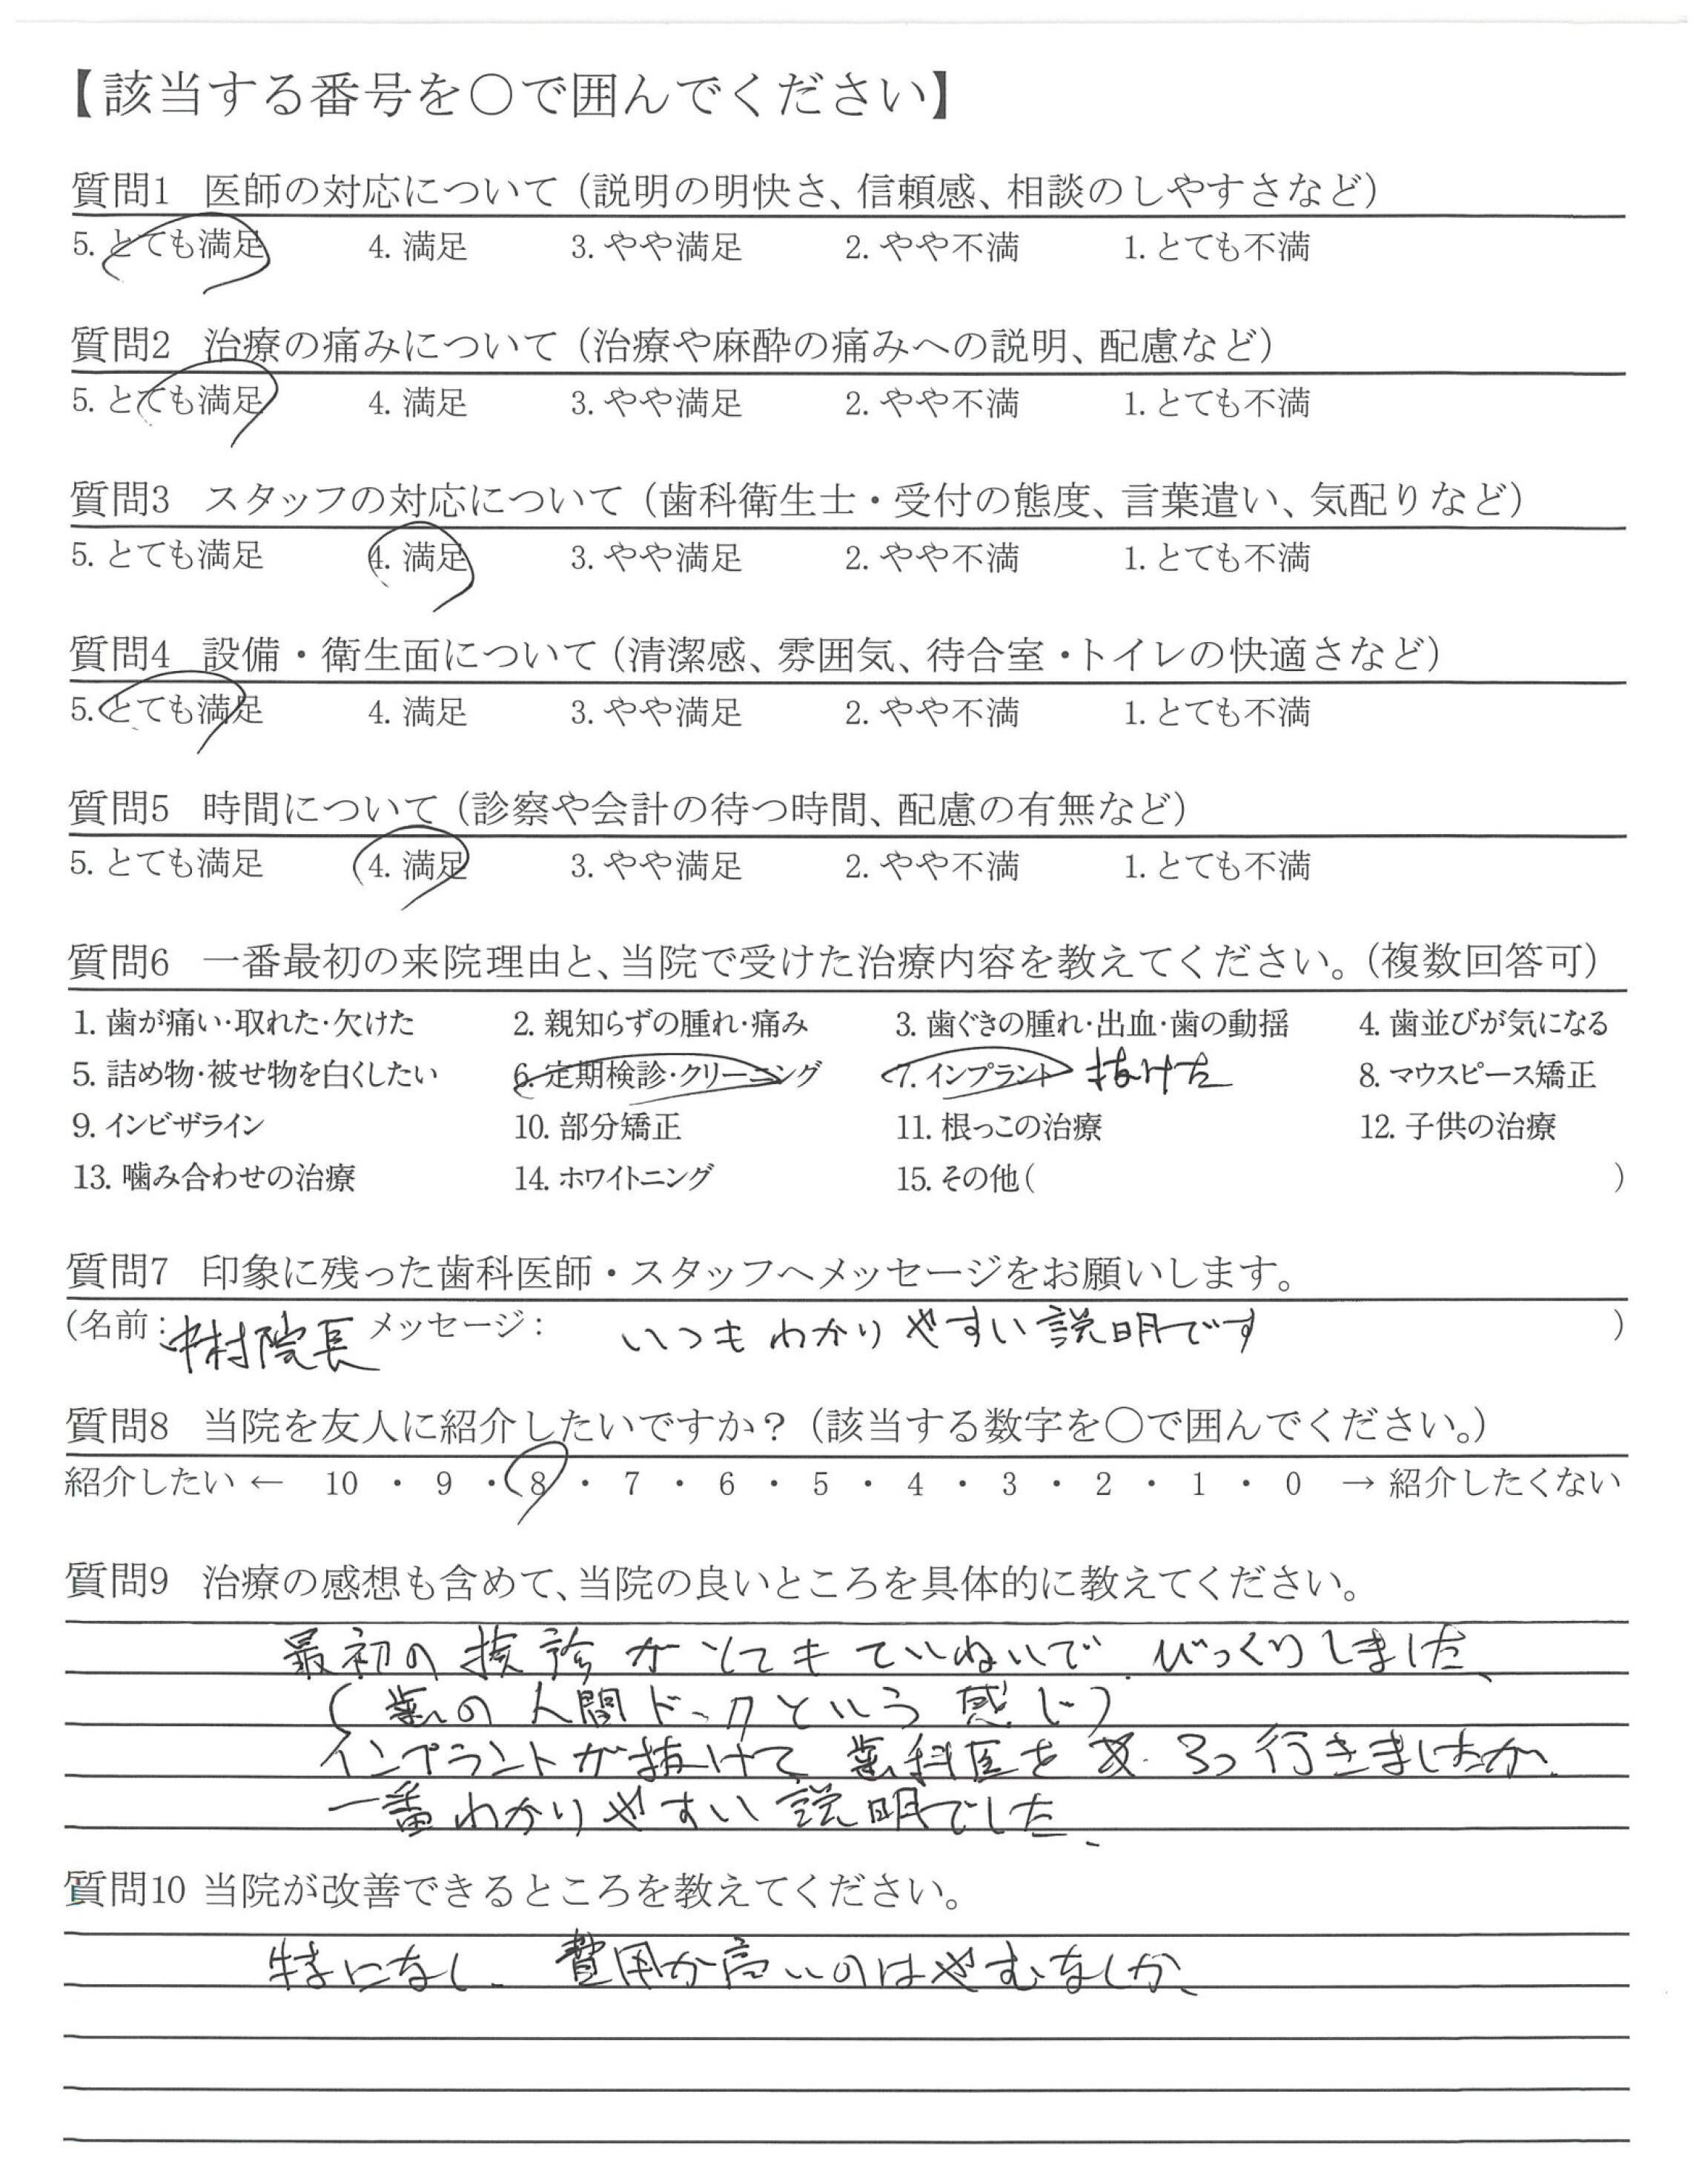 【該当する番号を○で囲んでください】
質問1 医師の対応について（説明の明快さ、信頼感、相談のしやすさなど）
5. とても満足 4. 満足 3. やや満足 2. やや不満 1. とても不満
質問2 治療の痛みについて（治療や麻酔の痛みへの説明、配慮など）
5. とても満足 4. 満足 3. やや満足 2. やや不満 1. とても不満
質問3 スタッフの対応について（歯科衛生士・受付の態度、言葉遣い、気配りなど）
5. とても満足 4. 満足 3. やや満足 2. やや不満 1. とても不満
質問4 設備・衛生面について（清潔感、雰囲気、待合室・トイレの快適さなど）
5. とても満足 4. 満足 3. やや満足 2. やや不満 1. とても不満
質問5 時間について（診察や会計の待つ時間、配慮の有無など）
5. とても満足 4. 満足 3. やや満足 2. やや不満 1. とても不満
質問6 一番最初の来院理由と、当院で受けた治療内容を教えてください。（複数回答可）
1. 歯が痛い・取れた・欠けた 2. 親知らずの腫れ・痛み 3. 歯ぐきの腫れ・出血・歯の動揺 4. 歯並びが気になる
5. 詰め物・被せ物を白くしたい 6. 定期検診・クリーニング 7. インプラント 抜けた 8. マウスピース矯正
9. インビザライン 10. 部分矯正 11. 根っこの治療 12. 子供の治療
13. 噛み合わせの治療 14. ホワイトニング 15. その他（ ）
質問7 印象に残った歯科医師・スタッフへメッセージをお願いします。
（名前：中村院長 メッセージ： いつもわかりやすい説明です ）
質問8 当院を友人に紹介したいですか？（該当する数字を○で囲んでください。）
紹介したい ← 10 ・ 9 ・ 8 ・ 7 ・ 6 ・ 5 ・ 4 ・ 3 ・ 2 ・ 1 ・ 0 → 紹介したくない
質問9 治療の感想も含めて、当院の良いところを具体的に教えてください。
最初の検診がとてもていねいで、びっくりしました、
（歯の人間ドックという感じ）
インプラントが抜けて歯科医を 3つ行きましたが、
一番わかりやすい説明でした、
質問10 当院が改善できるところを教えてください。
特になし、費用が高いのはやむなしか、